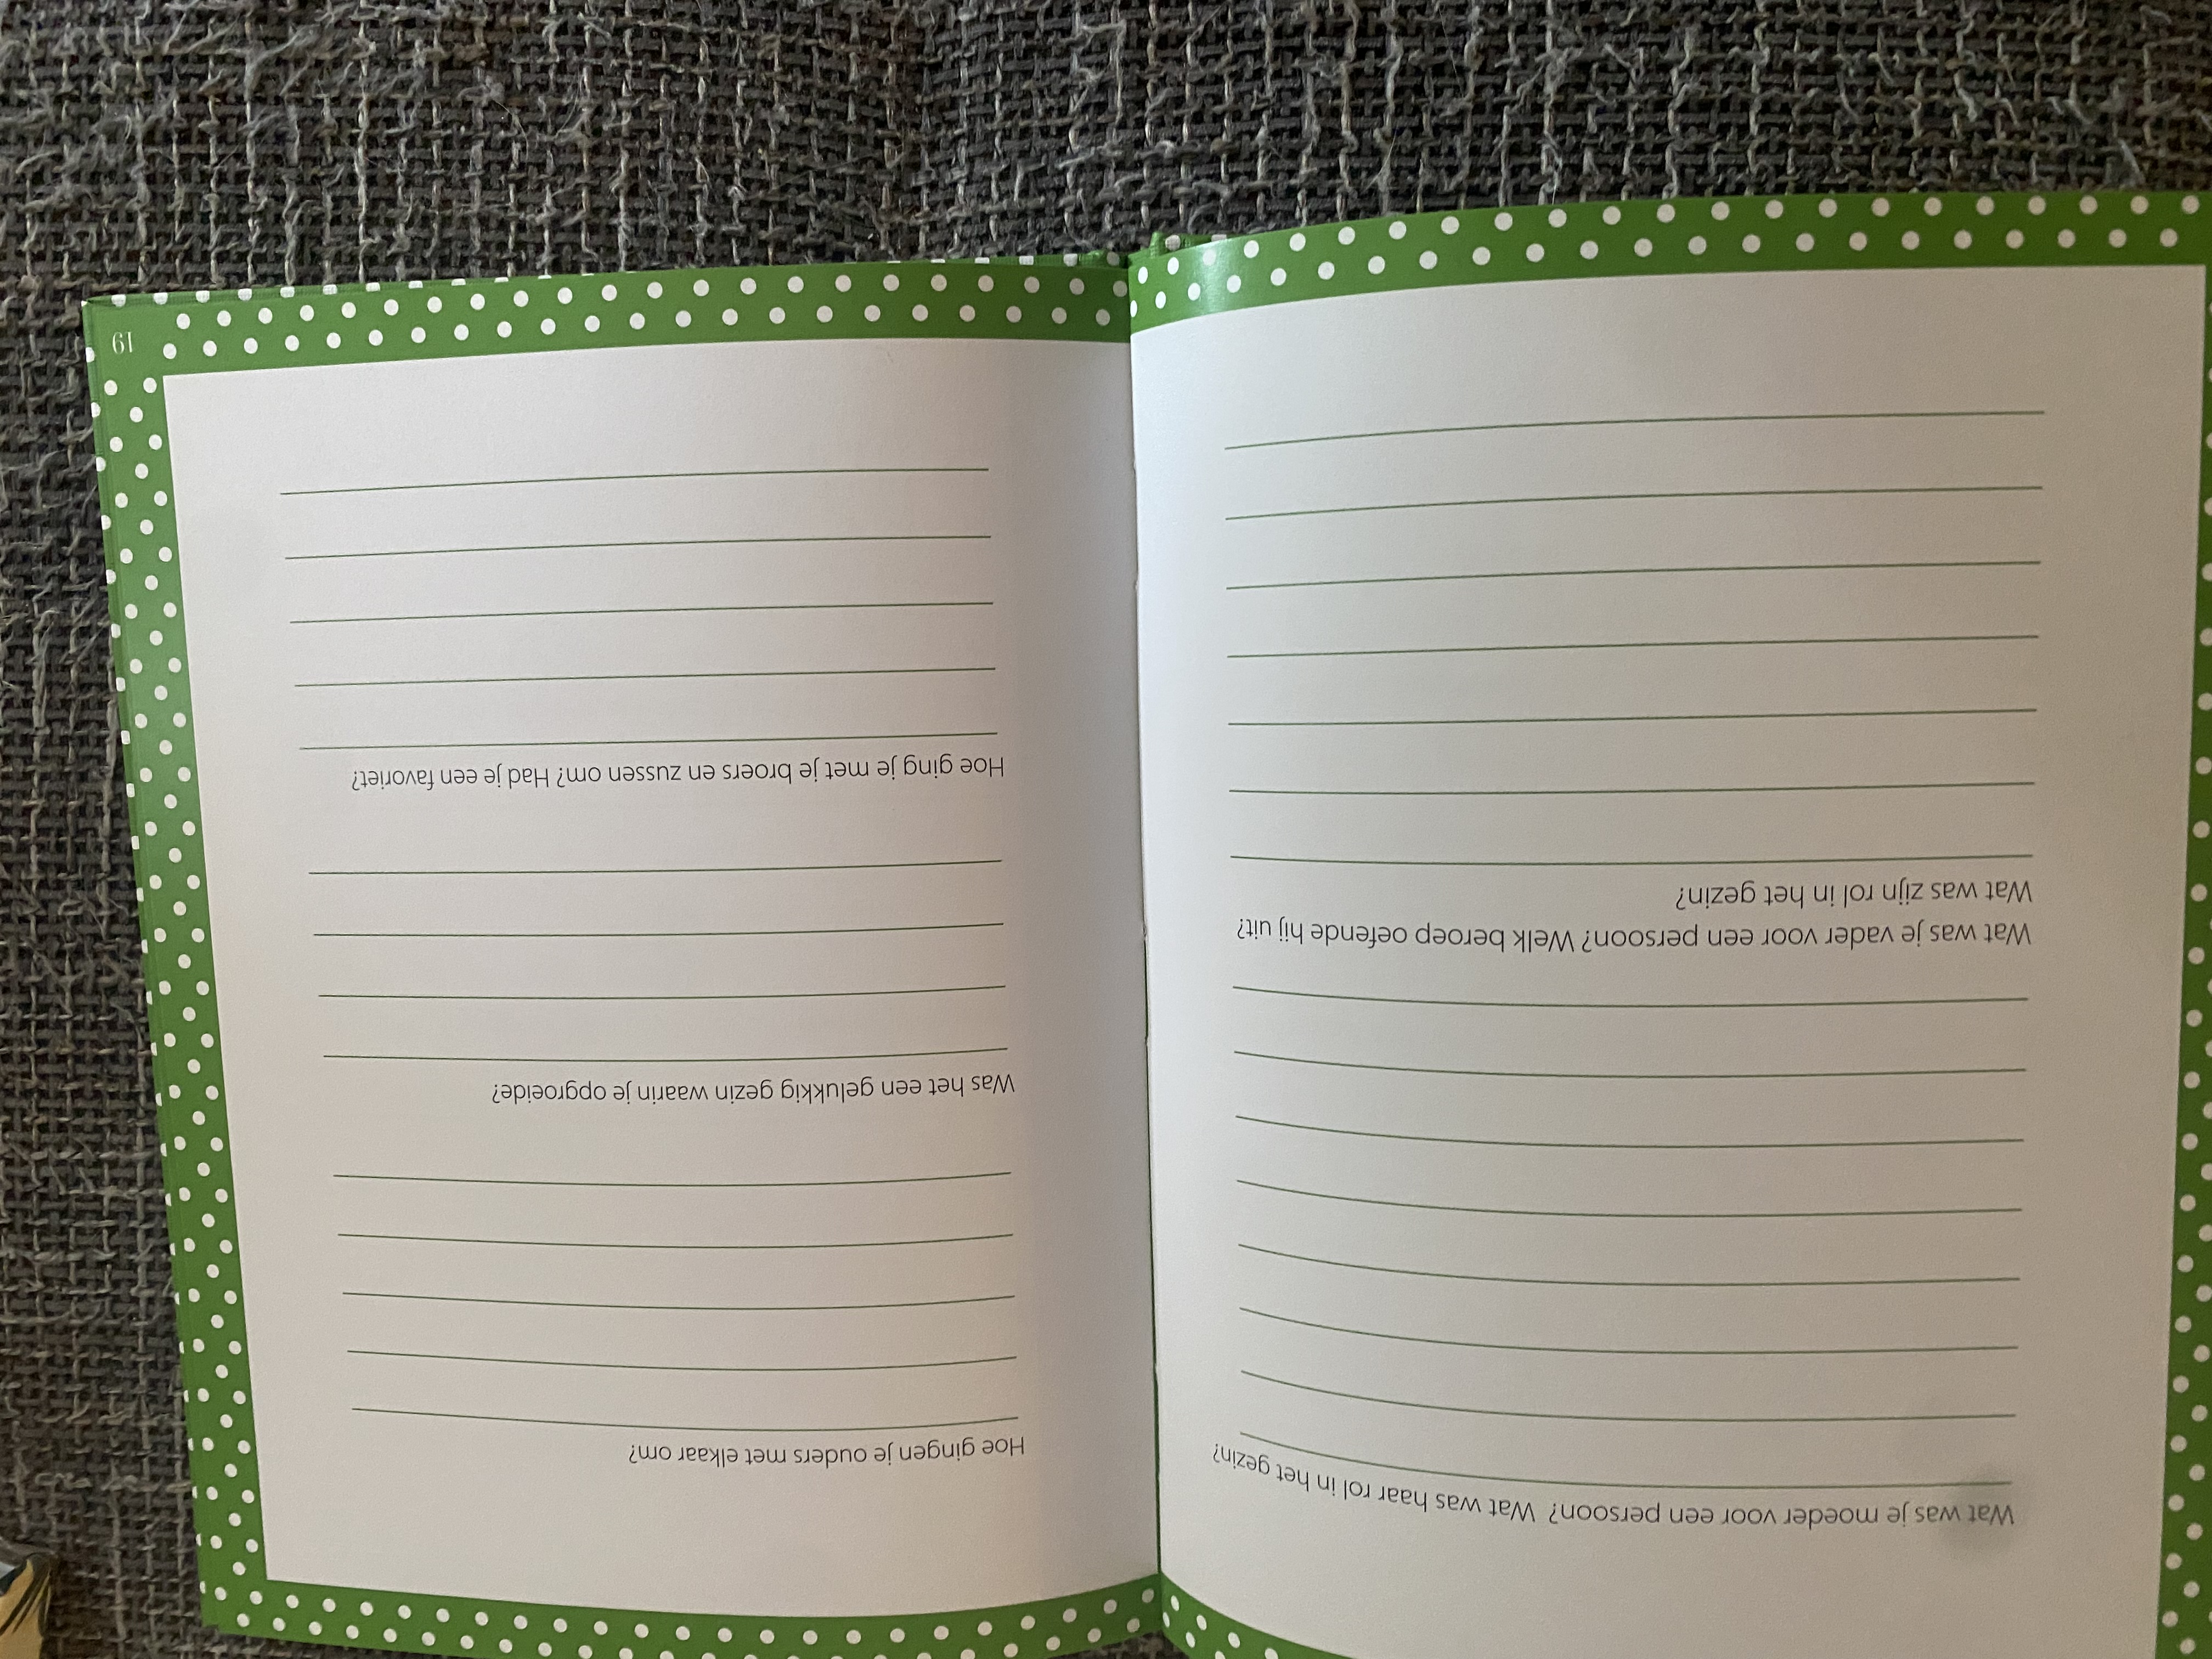 Wat was je moeder voor een persoon? Wat was haar rol in het gezin?
Wat was je vader voor een persoon? Welk beroep oefende hij uit?
Wat was zijn rol in het gezin?
Hoe gingen je ouders met elkaar om?
Was het een gelukkig gezin waarin je opgroeide?
Hoe ging je met je broers en zussen om? Had je een favoriet?
19